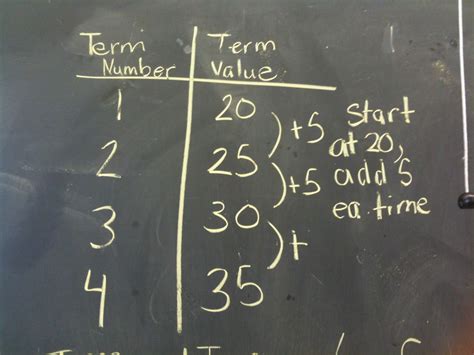 Term Number | Term Value
1 | 20
+5
2 | 25
+5
3 | 30
+
4 | 35
Start
at 20,
add 5
ea. time